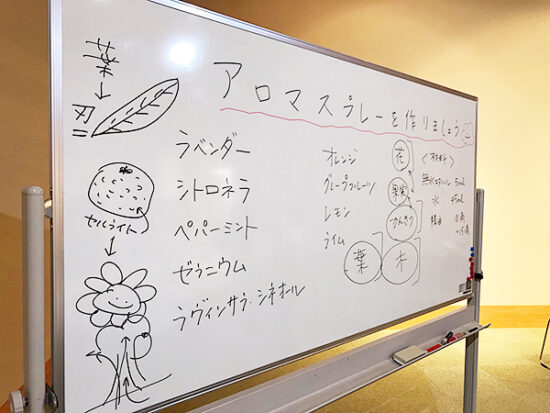 アロマスプレーを作りましょう
葉
セルライト
ラベンダー
シトロネラ
ペパーミント
ゼラニウム
ラヴィンサラ・シネオール
オレンジ
グレープフルーツ
レモン
ライム
花
果実
かんきつ
葉
木
〈材料〉
無水エタノール 5ml
水 45ml
精油